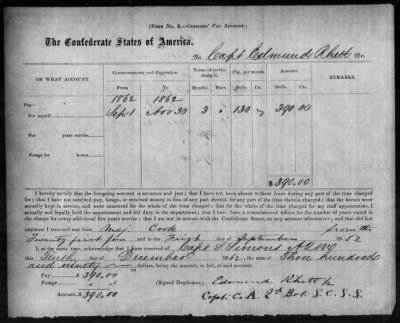 (Form No. 3.—Officers' Pay Account.)
The Confederate States of America,
To Capt Edmund Rhett Dr.
ON WHAT ACCOUNT.
Commencement and Expiration.
Terms of service charged.
Pay, per month.
Amount.
REMARKS.
From
To
Months.
Days.
Dolls.
Cts.
Dolls.
Cts.
Pay—
1862
1862
For myself,
Sept 1
Nov 30
3
130
390.00
For years service,
Forage for horses.
$390.00
I hereby certify that the foregoing account is accurate and just; that I have not been absent without leave during any part of the time charged
for; that I have not received pay, forage, or received money in lieu of any part thereof, for any part of the time therein charged; that the horses were
actually kept in service, and were mustered for the whole of the time charged; that for the whole of the time charged for my staff appointment, I
actually and legally held the appointment and did duty in the department; that I have been a commissioned officer for the number of years stated in
the charge for every additional five years service; that I am not in arrears with the Confederate States, on any account whatsoever; and that the last
payment I received was from Maj. Cook from the
Twenty first Jan to the First September 1862
I, at the same time, acknowledge that I have received of Capt
this Tenth day of December 1862, the sum of Three hundred
and ninety dollars, being the amount, in full, of said account.
Pay $390.00
Forage
Amount, $390.00
(Signed Duplicates,) Edmund Rhett Jr
Capt. C. A. 2d Bat. S. C. S. S.